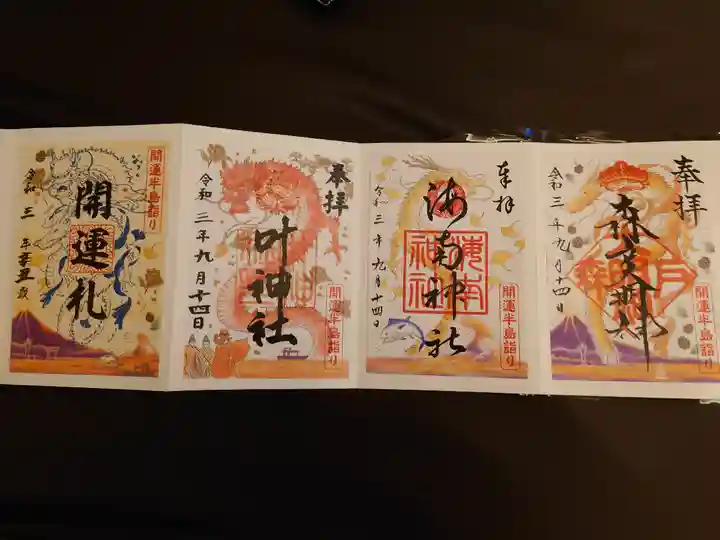 開運半島詣り
開運札
令和三年辛丑歳
奉拝
叶神社
令和三年九月十四日
開運半島詣り
奉拝
海南神社
令和三年九月十四日
海南神社
開運半島詣り
奉拝
森戸大明神
令和三年九月十四日
森戸
開運半島詣り